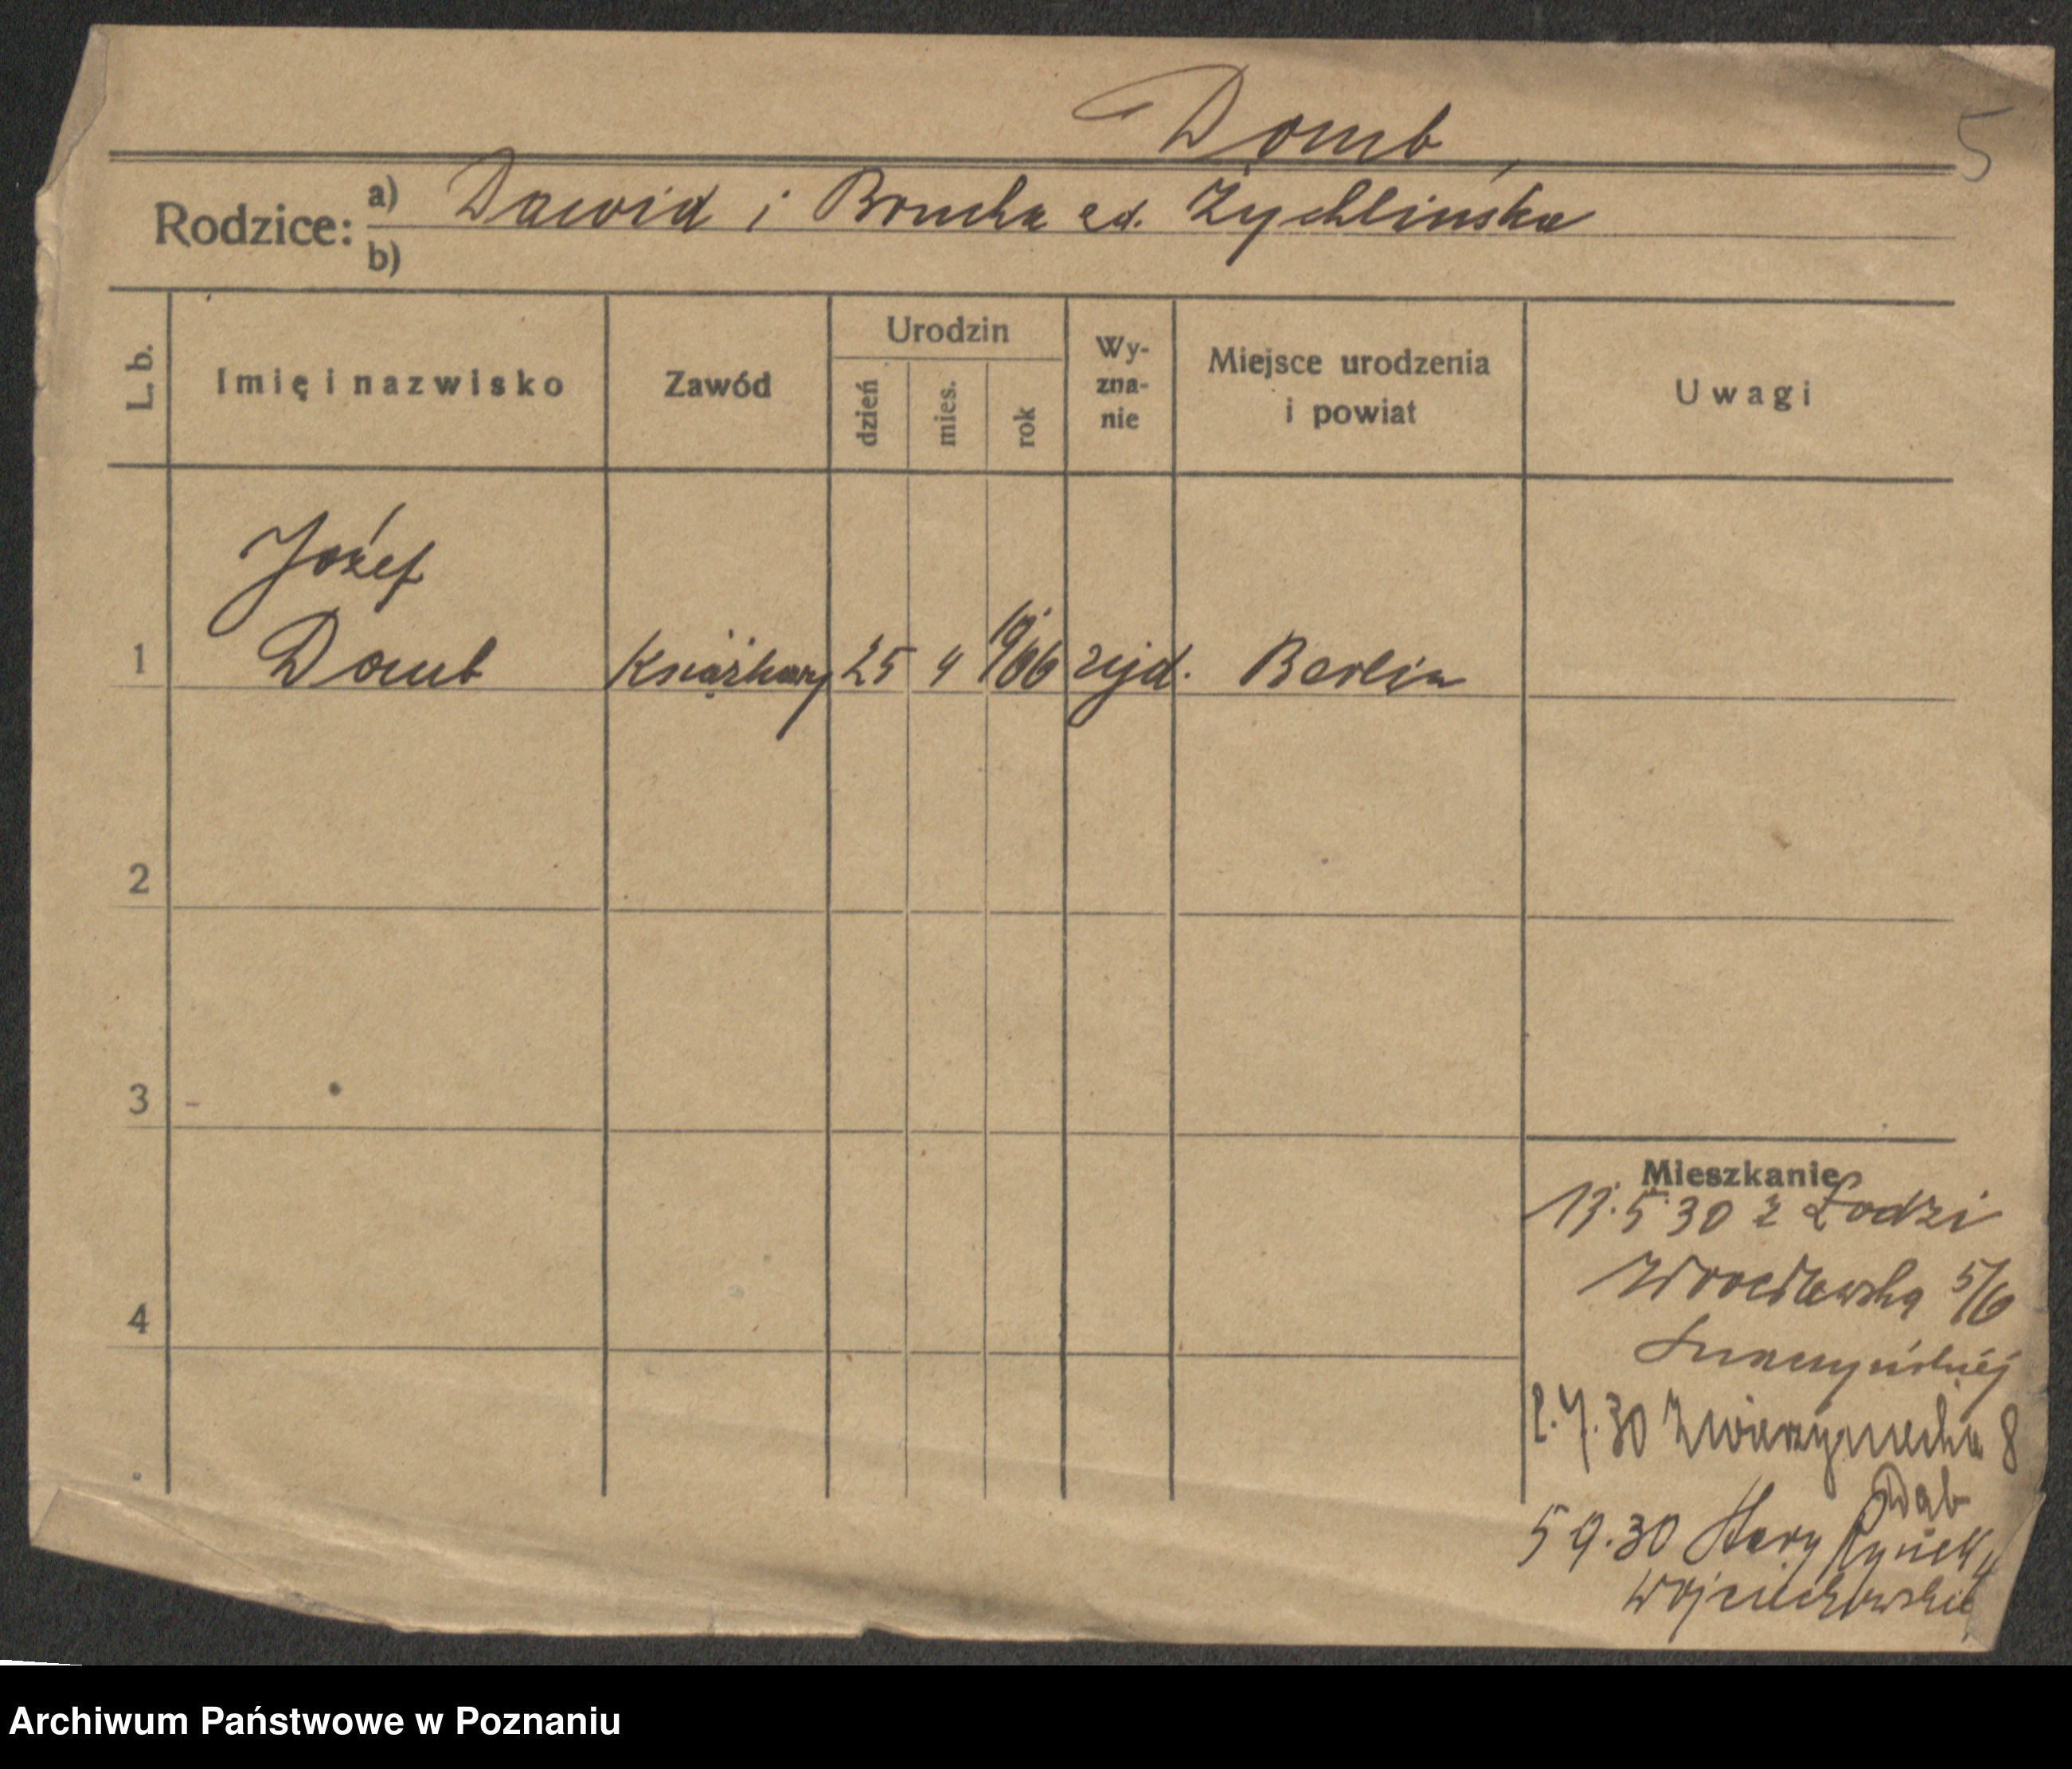 Domb,
5
Rodzice:
a) Dawid i Brucha zd. Żychlińska
b)
L. b.
Imię i nazwisko
Zawód
Urodzin
dzień
mies.
rok
Wy-
zna-
nie
Miejsce urodzenia
i powiat
Uwagi
1 Józef
Domb
Książkowy 25 4 1906 żyd. Berlin
2
3
4
Mieszkanie
13.5 30 z Łodzi
Wrocławska 5/6
2.7.30 Zwierzyniecka 8
Dąb
5 9.30 Stary Rynek
Wojciechowski
Archiwum Państwowe w Poznaniu